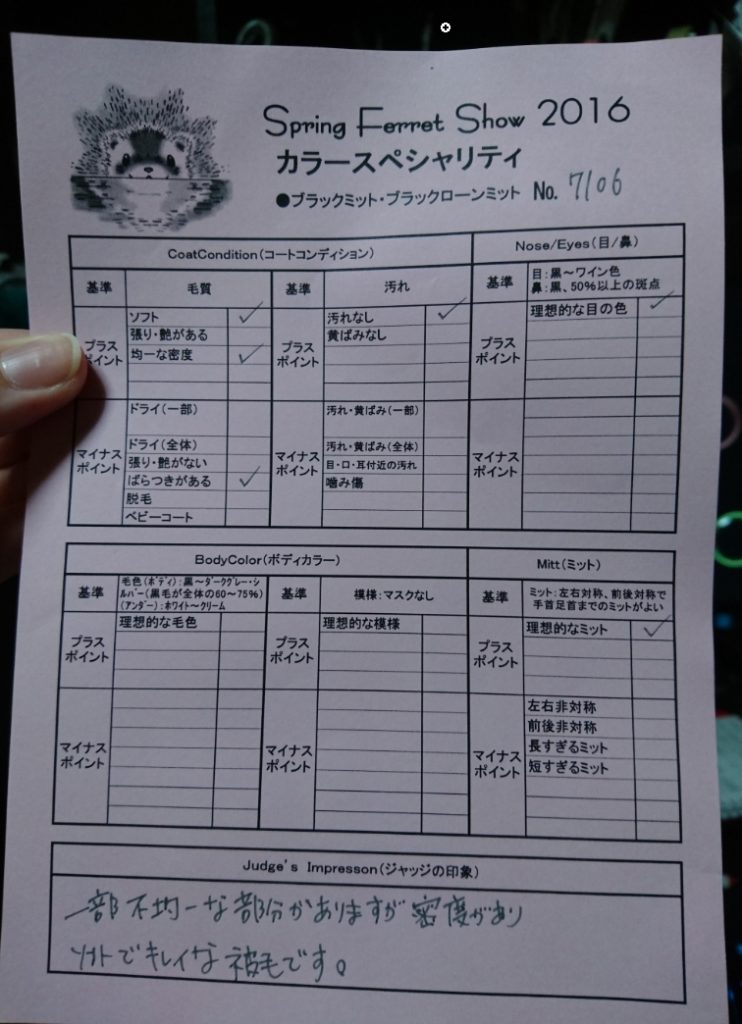 Spring Ferret Show 2016
カラースペシャリティ
●ブラックミット・ブラックローンミット No. 7106
CoatCondition(コートコンディション)
基準 毛質 基準 汚れ
プラスポイント
ソフト ✓
張り・艶がある
均一な密度 ✓
プラスポイント
汚れなし ✓
黄ばみなし
マイナスポイント
ドライ(一部)
ドライ(全体)
張り・艶がない
ばらつきがある ✓
脱毛
ベビーコート
マイナスポイント
汚れ・黄ばみ(一部)
汚れ・黄ばみ(全体)
目・口・耳付近の汚れ
噛み傷
Nose/Eyes(目/鼻)
基準
目:黒～ワイン色
鼻:黒、50%以上の斑点
プラスポイント
理想的な目の色 ✓
マイナスポイント
BodyColor(ボディカラー)
基準
毛色(ボディ):黒～ダークグレー・シ
ルバー(黒毛が全体の60～75%)
(アンダー):ホワイト～クリーム
基準 模様:マスクなし
プラスポイント
理想的な毛色
プラスポイント
理想的な模様
マイナスポイント
マイナスポイント
Mitt(ミット)
基準
ミット:左右対称、前後対称で
手首足首までのミットがよい
プラスポイント
理想的なミット ✓
マイナスポイント
左右非対称
前後非対称
長すぎるミット
短すぎるミット
Judge's Impresson(ジャッジの印象)
一部不均一な部分がありますが密度があり
ソフトでキレイな被毛です。